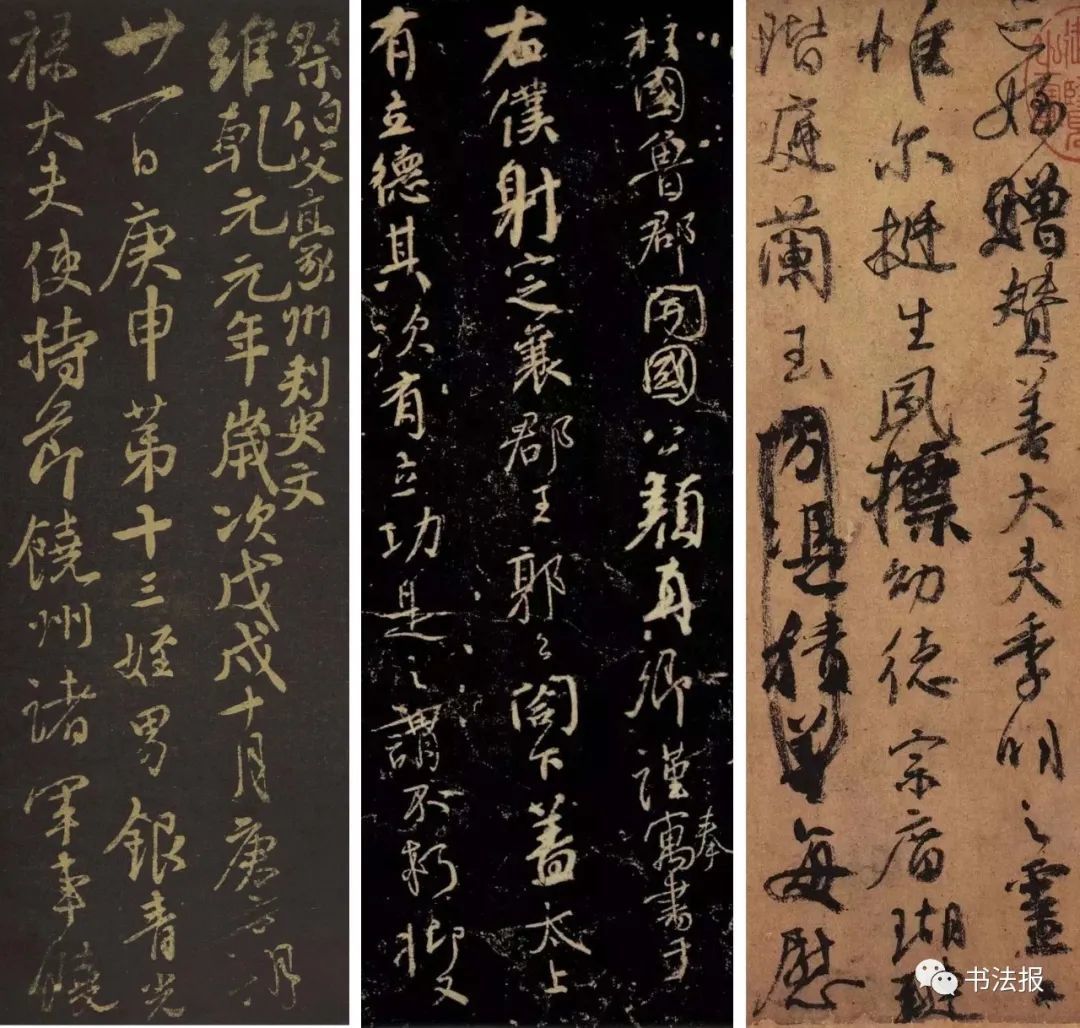 祭伯父豪州刺史文
維乾元元年歲次戊戌十月庚 朔
廿一日庚申第十三姪男銀青光
祿大夫使持節饒州諸軍事饒
柱國魯郡開國公顏真卿謹奉寓書于
右僕射定襄郡王郭公閣下蓋太上
有立德其次有立功是之謂不朽抑又
亡姪贈贊善大夫季明之靈曰
惟尔挺生夙標幼德宗廟瑚璉
階庭蘭玉每慰
书法报